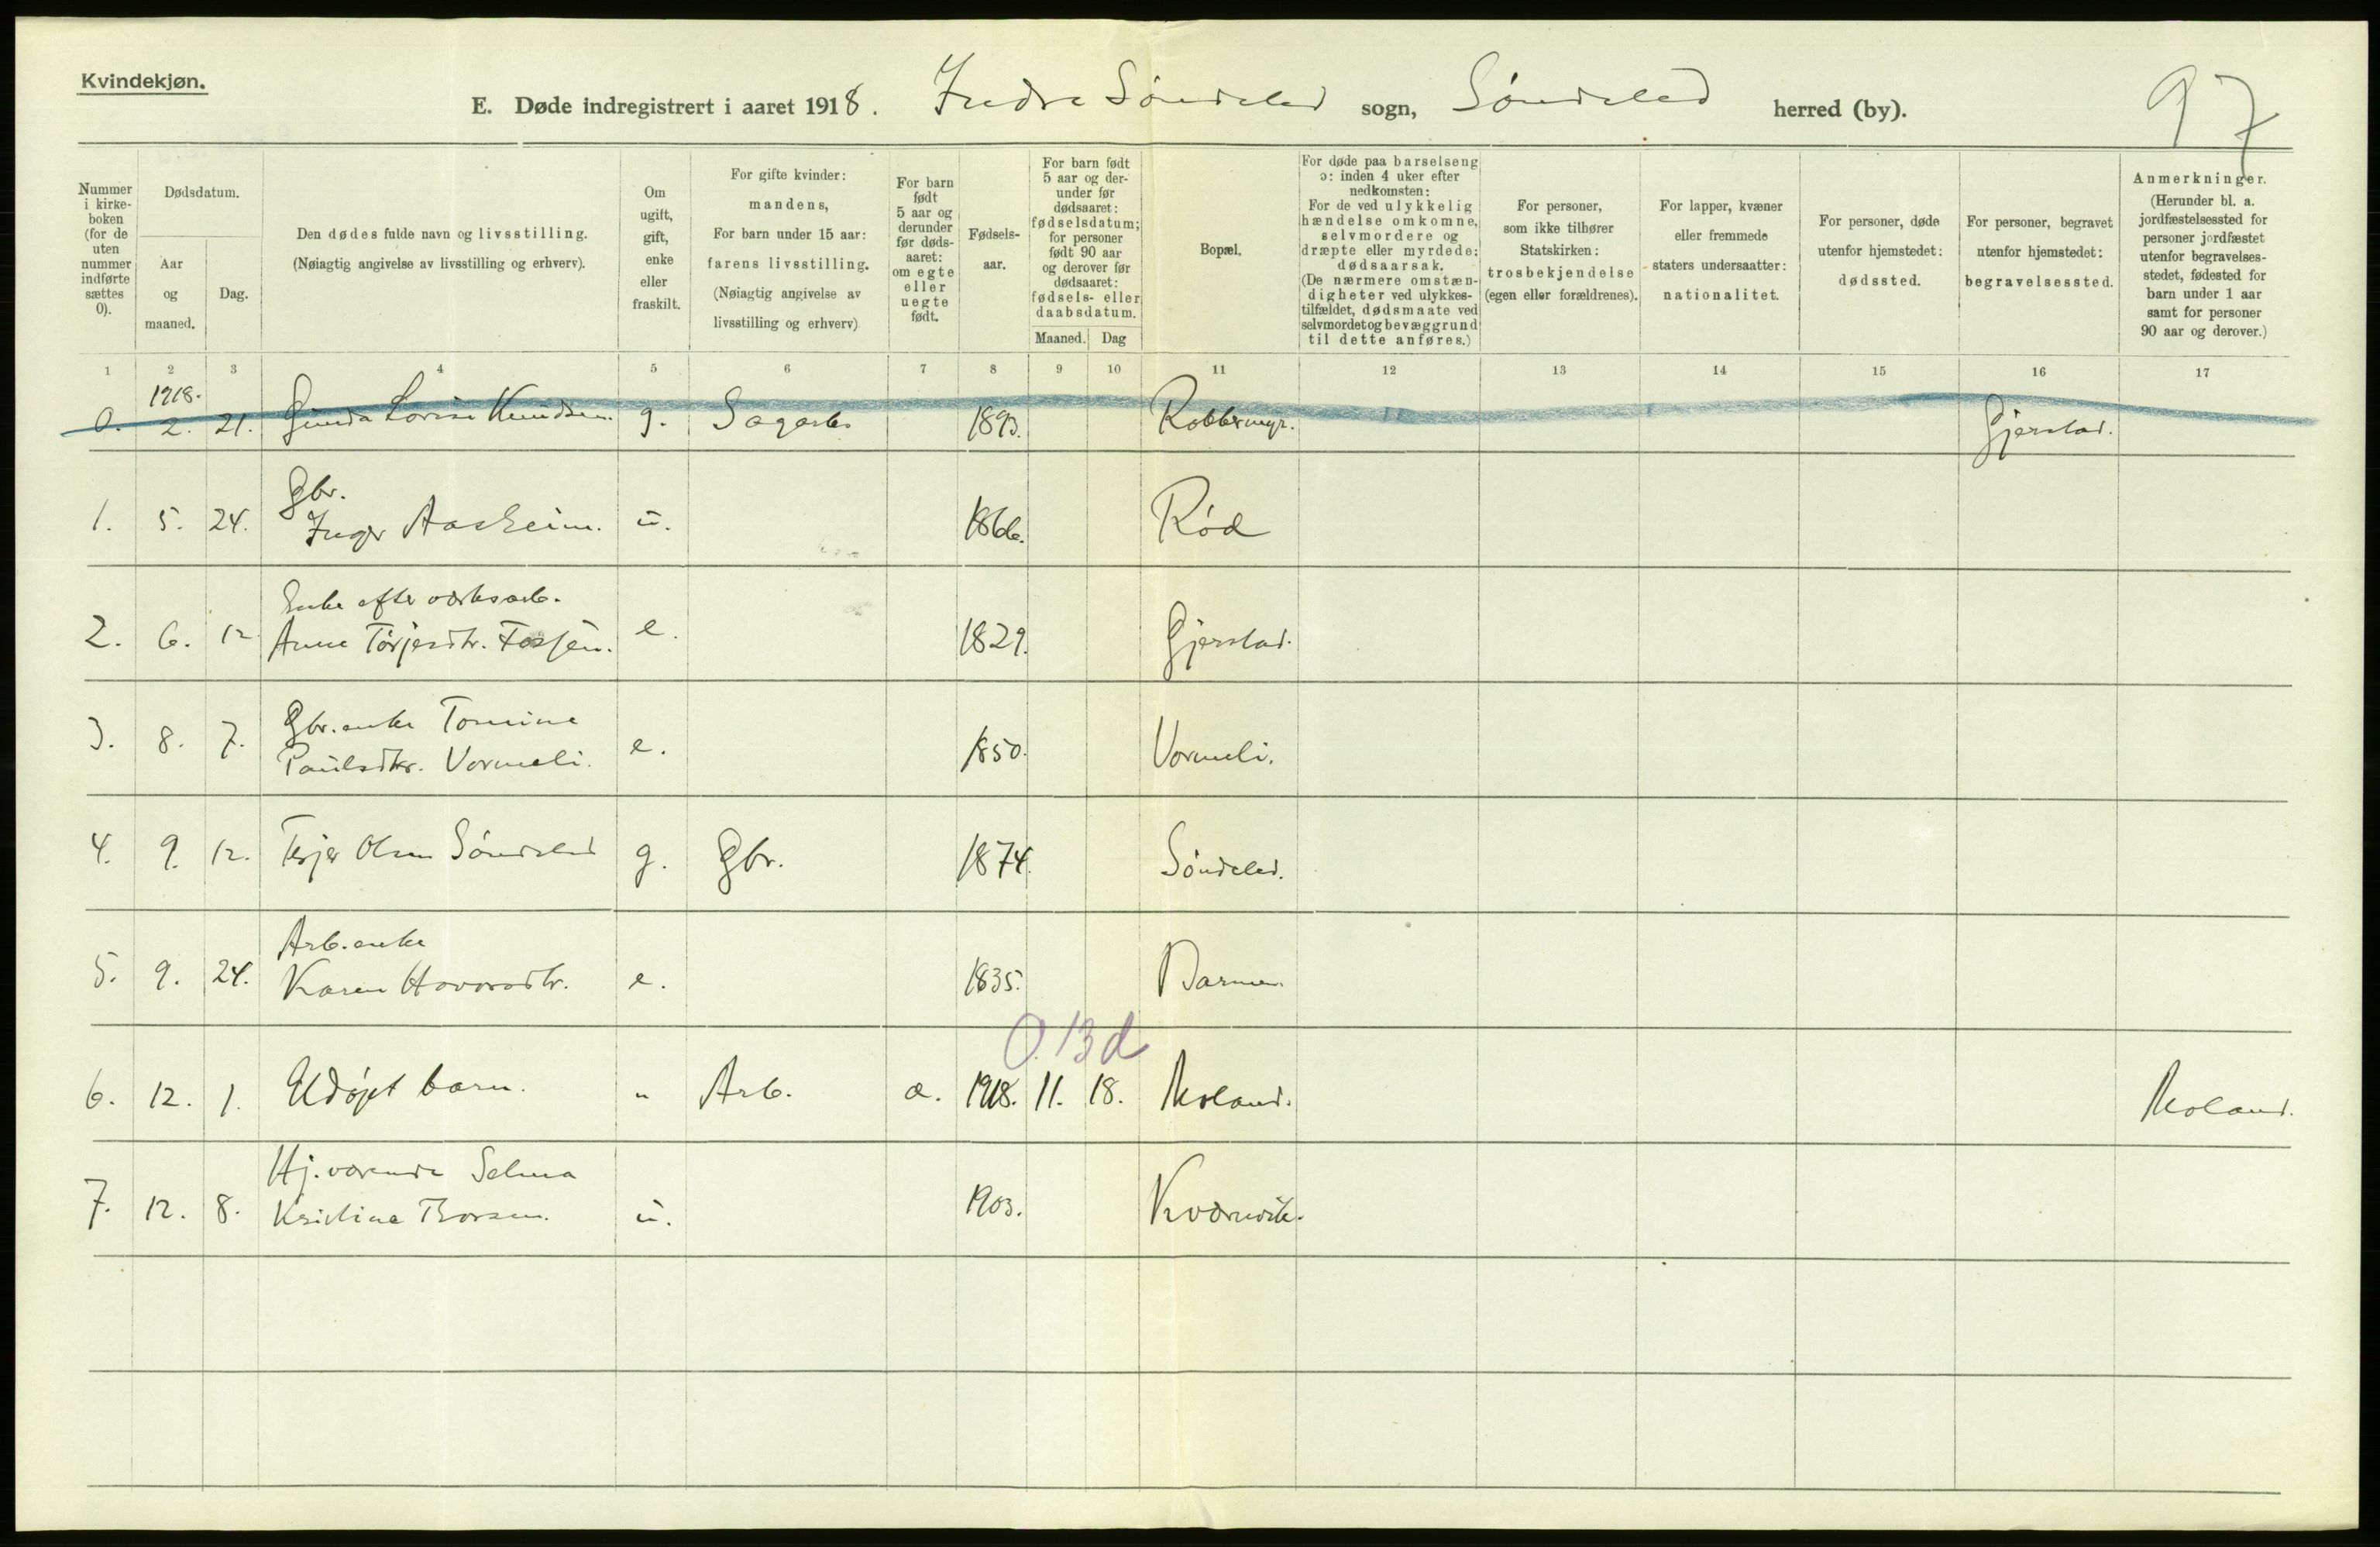 Kvindekjøn.
E. Døde indregistrert i aaret 1918. Indre Søndeled sogn, Søndeled herred (by).
97
Nummer i kirkeboken (for de uten nummer indførte sættes 0).
Dødsdatum.
Aar og maaned.
Dag.
Den dødes fulde navn og livsstilling.
(Nøiagtig angivelse av livsstilling og erhverv).
Om ugift, gift, enke eller fraskilt.
For gifte kvinder: mandens,
For barn under 15 aar: farens livsstilling.
(Nøiagtig angivelse av livsstilling og erhverv)
For barn født 5 aar og derunder før dødsaaret: om egte eller uegte født.
Fødselsaar.
For barn født 5 aar og derunder før dødsaaret: fødselsdatum; for personer født 90 aar og derover før dødsaaret: fødsels- eller daabsdatum.
Maaned. Dag
Bopæl.
For døde paa barselseng ɔ: inden 4 uker efter nedkomsten:
For de ved ulykkelig hændelse omkomne, selvmordere og dræpte eller myrdede: dødsaarsak.
(De nærmere omstændigheter ved ulykkestilfældet, dødsmaate ved selvmordet og bevæggrund til dette anføres.)
For personer, som ikke tilhører Statskirken: trosbekjendelse (egen eller forældrenes).
For lapper, kvæner eller fremmede staters undersaatter: nationalitet.
For personer, døde utenfor hjemstedet: dødssted.
For personer, begravet utenfor hjemstedet: begravelsessted.
Anmerkninger.
(Herunder bl. a. jordfæstelsessted for personer jordfæstet utenfor begravelsesstedet, fødested for barn under 1 aar samt for personer 90 aar og derover.)
1 2 3 4 5 6 7 8 9 10 11 12 13 14 15 16 17
1918.
0. 2. 21. Gunda Lovise Knudsen. g. Sagarb. 1893. Robbermyr. Gjerstad.
Gbr.
1. 5. 24. Inger Aasheim. u. 1866. Rød
Enke efter verksarb.
2. 6. 12 Anne Torjesdtr. e. 1829. Gjerstad.
Gbr.enke Tomine
3. 8. 7. Paulsdtr. Vormeli. e. 1850. Vormeli.
4. 9. 12. Terjer Olsen Søndeled g. Gbr. 1874. Søndeled.
Arb.enke
5. 9. 24. Karen Havorsdtr. e. 1835. Barmen.
0.13d
6. 12. 1. Udøpt barn. " Arb. æ. 1918. 11. 18. Moland. Moland.
Hj.værende Selma
7. 12. 8. Kristine Thorsen. u. 1903. Kværnvik.